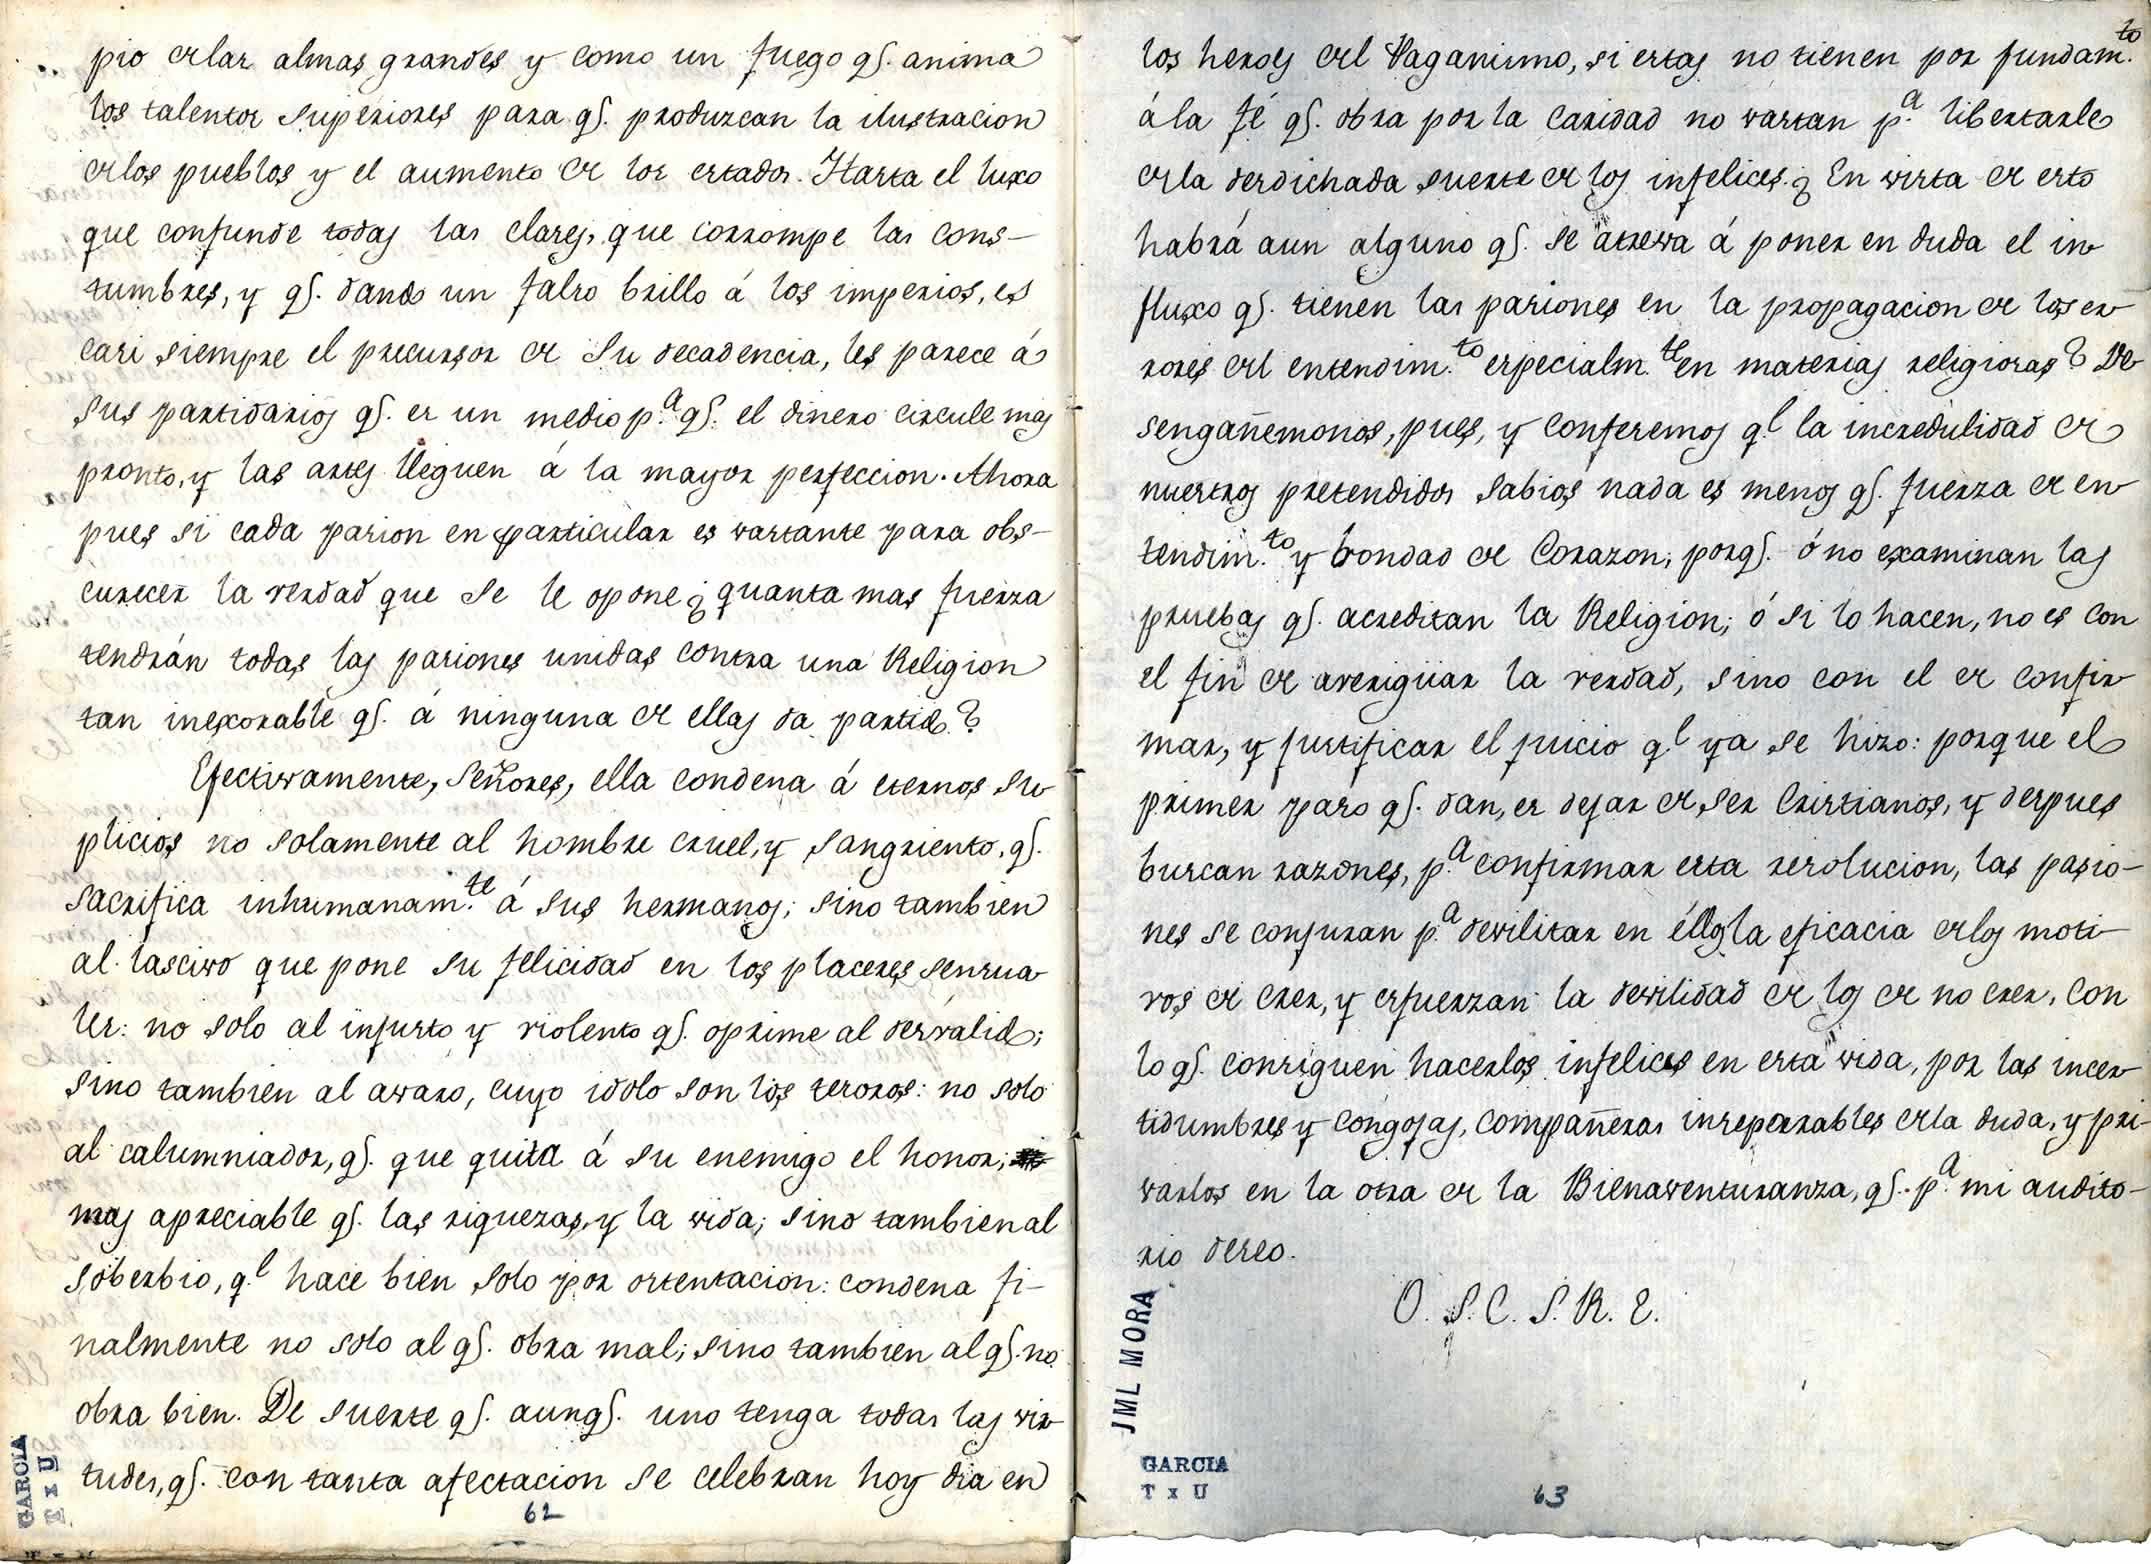 pio de las almas grandes y como un fuego qe. anima
los talentos superiores para qe. produzcan la ilustracion
de los pueblos y el aumento de los estados. Hasta el luxo
que confunde todas las clases, que corrompe las cons-
tumbres, y qe. dando un falso brillo á los imperios, es
casi siempre el precursor de su decadencia, les parece á
sus partidarios qe. es un medio pa. qe. el dinero circule mas
pronto, y las artes lleguen á la mayor perfeccion. Ahora
pues si cada pasion en particular es vastante para obs-
curecer la verdad que se le opone ¿ quanta mas fuerza
tendrán todas las pasiones unidas contra una Religion
tan inexorable qe. á ninguna de ellas da partido?
Efectivamente, Señores, ella condena á eternos su-
plicios no solamente al hombre cruel, y sangriento, qe.
sacrifica inhumanam.te á sus hermanos; sino tambien
al lascivo que pone su felicidad en los placeres sensua-
les: no solo al injusto y violento qe. oprime al desvalido;
sino tambien al avaro, cuyo idolo son los tesoros: no solo
al calumniador, qe. que quita á su enemigo el honor;
mas apreciable qe. las riquezas, y la vida; sino tambien al
soberbio, q.l hace bien solo por ostentacion: condena fi-
nalmente no solo al qe. obra mal; sino tambien al qe. no
obra bien. De suerte qe. aunqe. uno tenga todas las vir-
tudes, qe. con tanta afectacion se celebran hoy dia en
62
GARCIA
T x U
los heroes del Paganismo, si estas no tienen por fundam.to
á la fé qe. obra por la caridad no vastan p.a libertarle
de la desdichada suerte de los infelices. ¿ En vista de esto
habrá aun alguno qe. se atreva á poner en duda el in-
fluxo qe. tienen las pasiones en la propagacion de los er-
rores del entendim.to especialm.te en materias religiosas? De-
sengañemonos, pues, y confesemos q.l la incredulidad de
nuestros pretendidos sabios nada es menos qe. fuerza de en-
tendim.to y bondad de Corazon; porqe. ó no examinan las
pruebas qe. acreditan la Religion; ó si lo hacen, no es con
el fin de averigüar la verdad, sino con el de confir-
mar, y justificar el juicio q.l ya se hizo: porque el
primer paso qe. dan, es dejar de ser Cristianos, y despues
buscan razones, p.a confirmar esta resolucion, las pasio-
nes se conjuran p.a devilitar en éllos la eficacia de los moti-
vos de creer, y esfuerzan la devilidad de los de no creer, con
lo qe. consiguen hacerlos infelices en esta vida, por las incer-
tidumbres y congojas, compañeras inseparables de la duda, y pri-
varlos en la otra de la Bienaventuranza, qe. p.a mi audito-
rio deseo.
O. S. C. S. R. E.
JML MORA
GARCIA
T x U
63